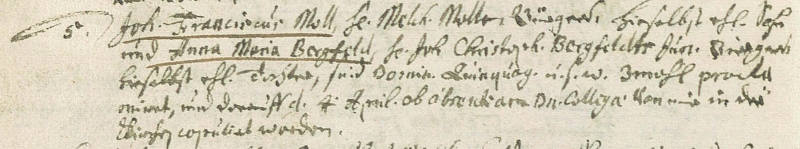 5. Joh. Franciscus Moll, H. Melch. Molls, Bürgers hieselbst ehl. Sohn
und Anna Maria Bergfeld, H. Joh Christoph. Bergfeldts Bürgers
hieselbst ehl. Tochter, sind Domin. Quinquag. u.s.w. 3mahl procla
miret, und darauff d. 4 April. ob absentiam Dn. Collegæ von mir in der
Kirchen copuliret worden.